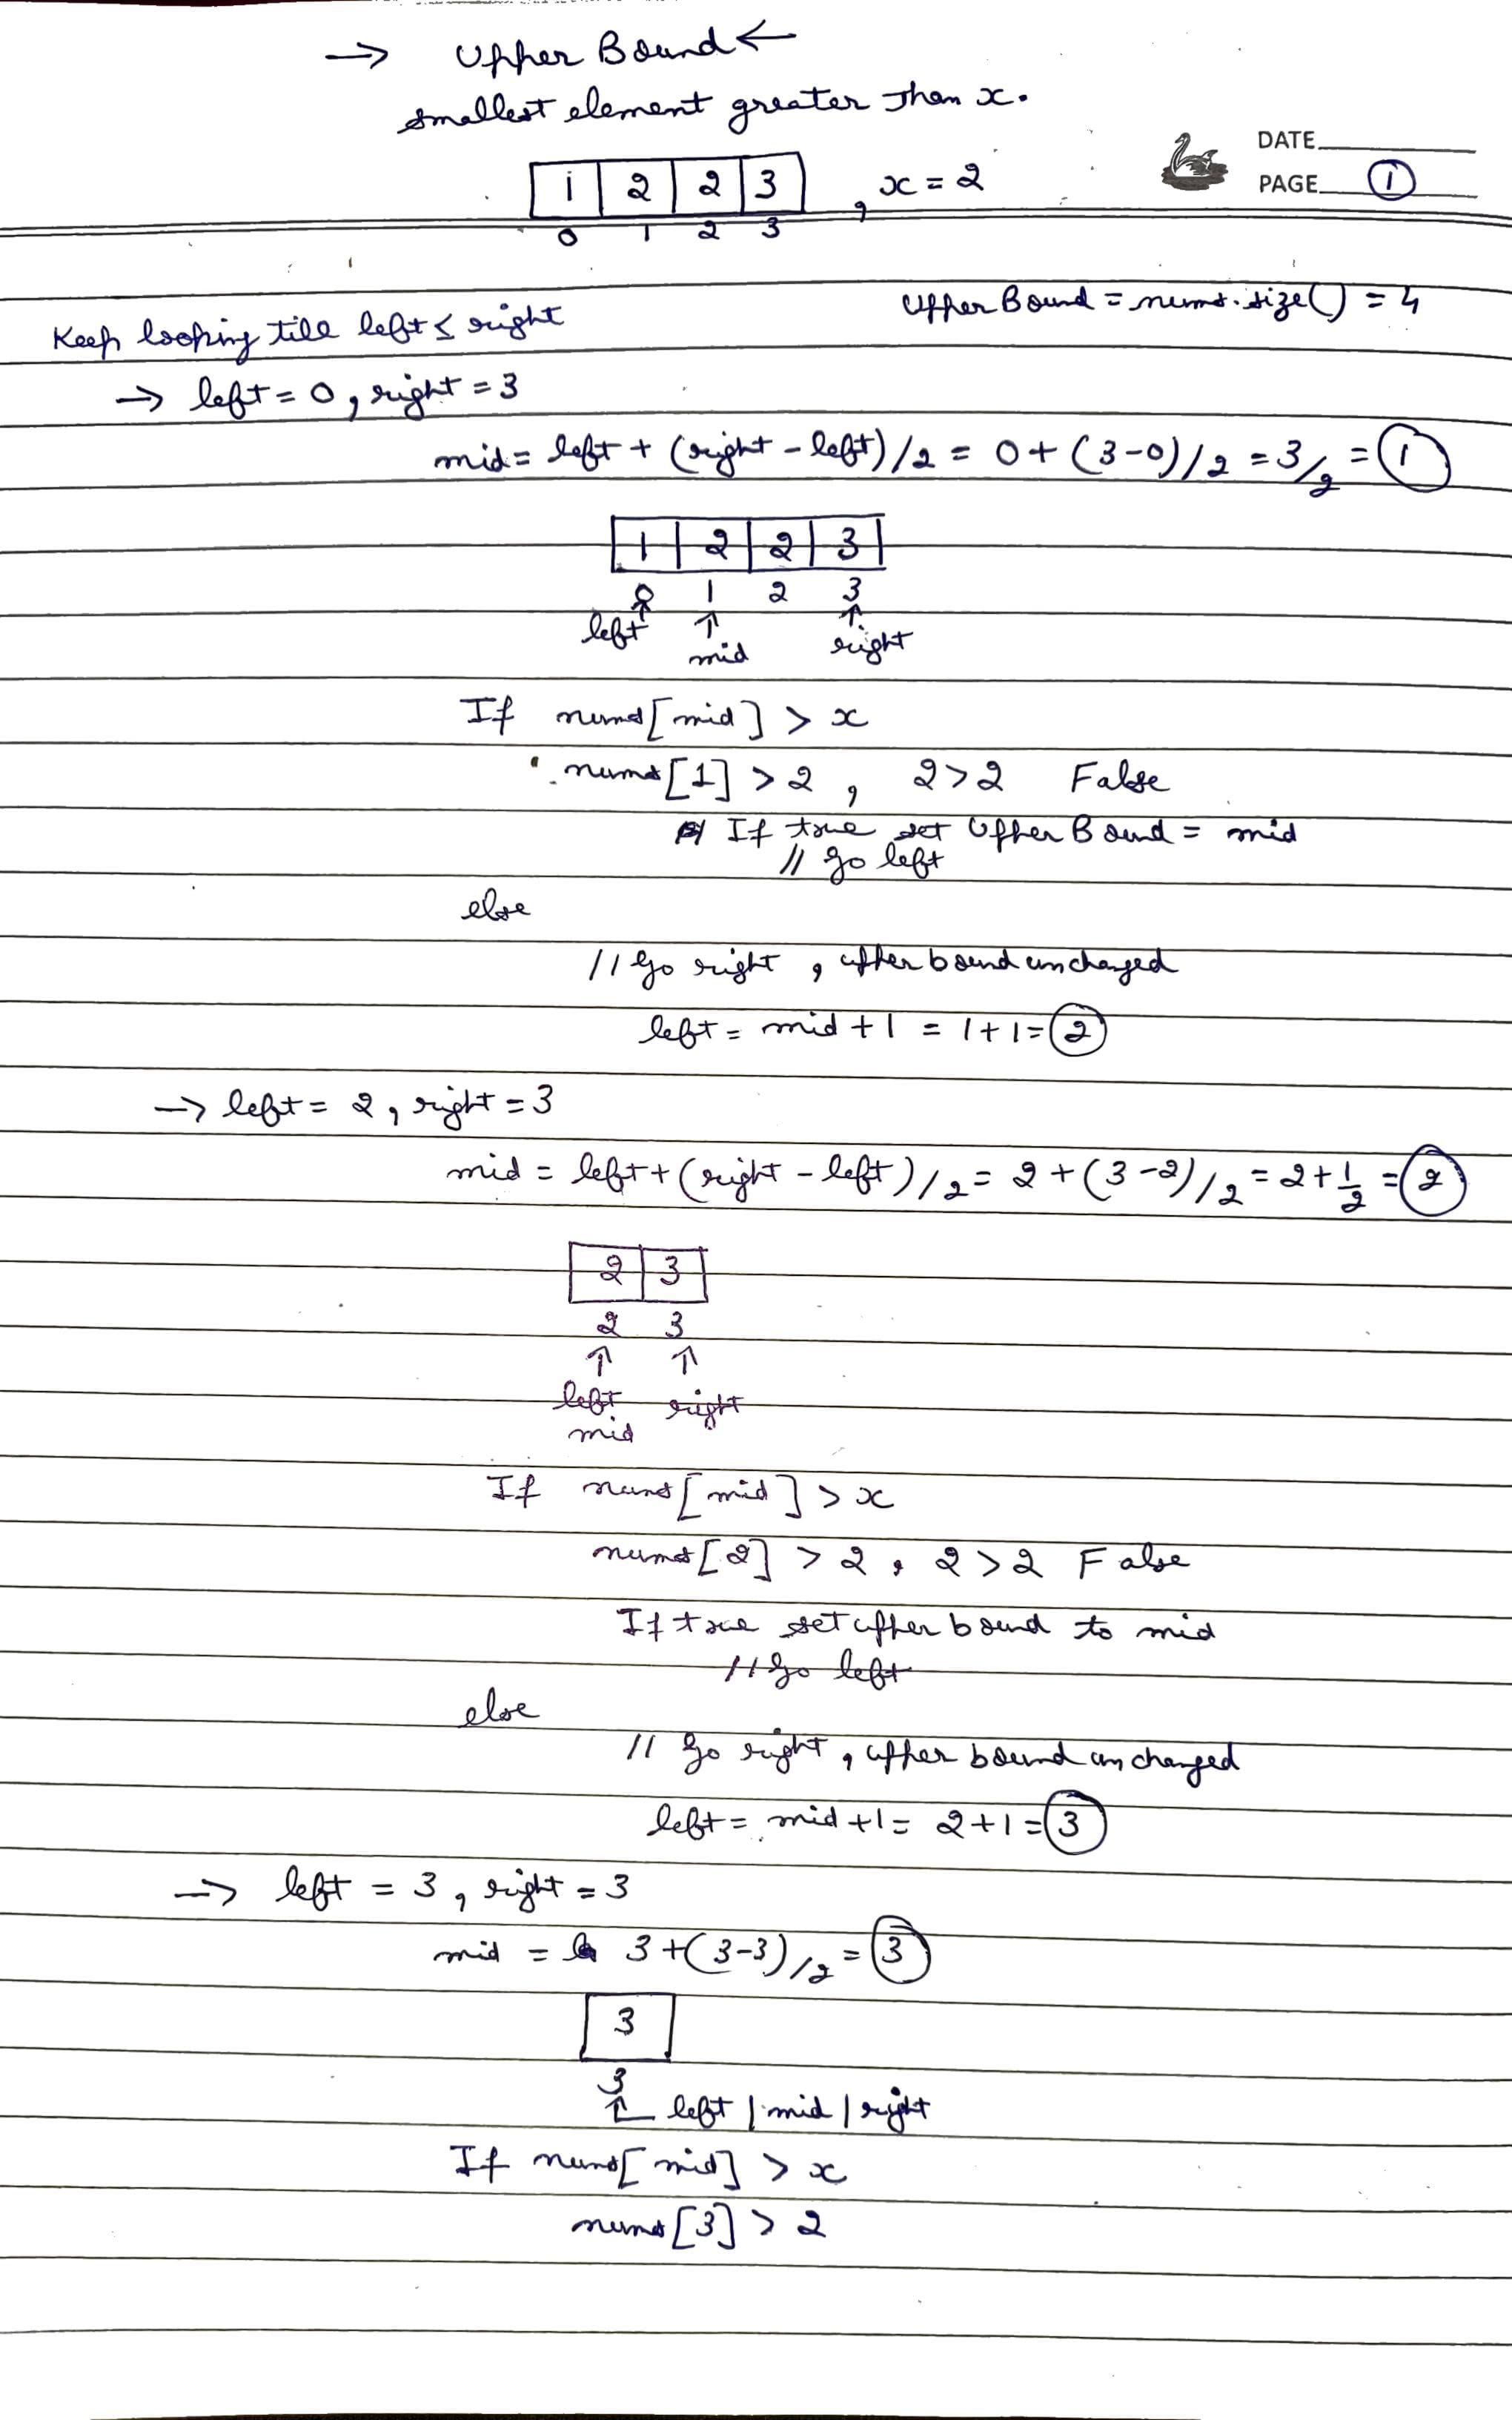 → Upper Bound ←
smallest element greater than x.
DATE
1 2 2 3 , x = 2
PAGE 1
0 1 2 3
UpperBound = nums.size() = 4
Keep looping till left ≤ right
→ left = 0, right = 3
mid = left + (right - left)/2 = 0 + (3-0)/2 = 3/2 = 1
1 2 2 3
0 1 2 3
left mid right
If nums[mid] > x
nums[1] > 2 , 2>2 False
If true set UpperBound = mid
// go left
else
// Go right , upper bound unchanged
left = mid + 1 = 1+1 = 2
→ left = 2, right = 3
mid = left + (right - left)/2 = 2 + (3-2)/2 = 2 + 1/2 = 2
2 3
2 3
↑ ↑
left right
mid
If nums[mid] > x
nums[2] > 2 , 2>2 False
If true set upper bound to mid
// Go left
else
// Go right , upper bound unchanged
left = mid+1 = 2+1 = 3
→ left = 3, right = 3
mid = 3+(3-3)/2 = 3
3
3
↑ left | mid | right
If nums[mid] > x
nums[3] > 2